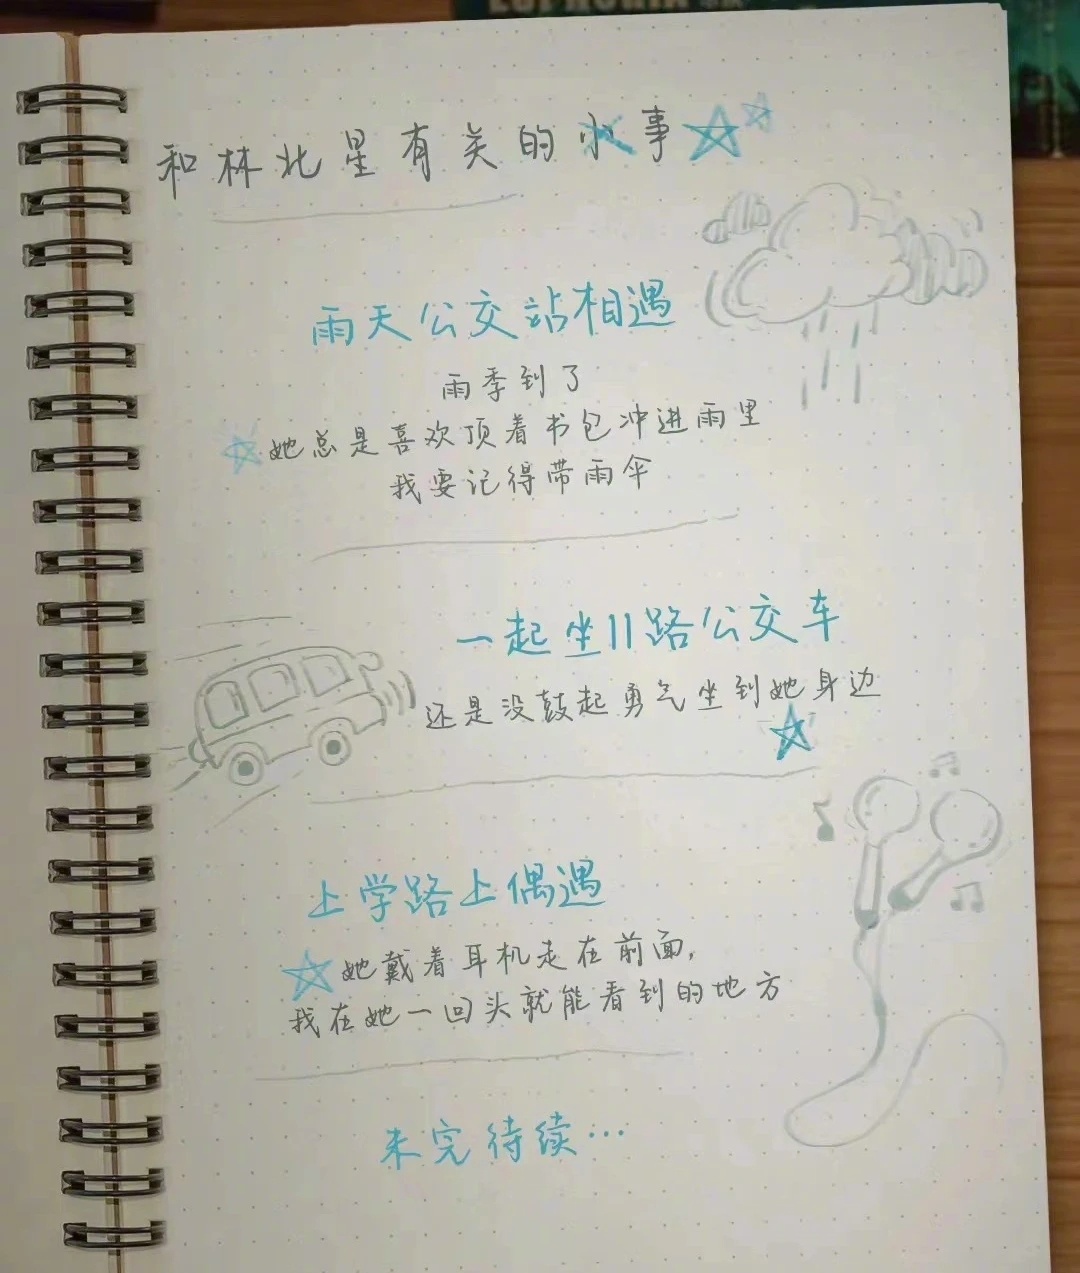 和林北星有关的小事
雨天公交站相遇
雨季到了
她总是喜欢顶着书包冲进雨里
我要记得带雨伞
一起坐11路公交车
还是没鼓起勇气坐到她身边
上学路上偶遇
她戴着耳机走在前面,
我在她一回头就能看到的地方
未完待续…